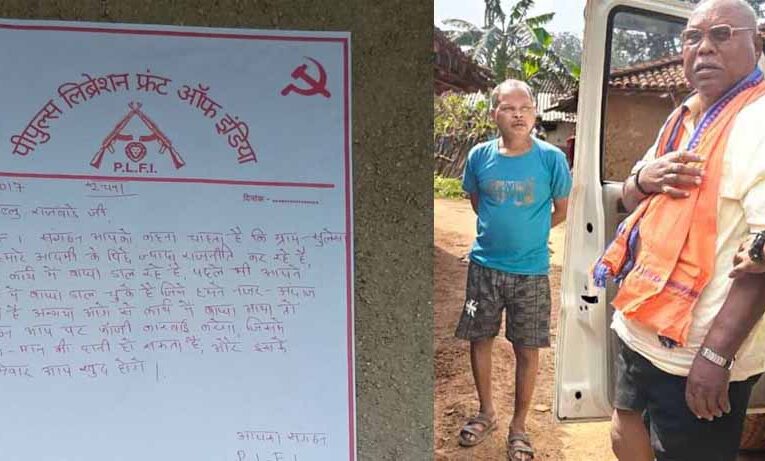 पीपुल्स लिब्रेशन फ्रंट ऑफ इंडिया
P.L.F.I.
017 सूचना
दिनांक
राजवाड़े जी,
संगठन आपको कहना चाहता है कि ग्राम-
आदमी के पिछे ज्यादा राजनीति कर रहे है,
कार्य में बाधा डाल रहे है, पहले भी आपने
में बाधा डाल चुके है जिसे हमने नजर-अंदाज
है अन्यथा आगे से कार्य में बाधा आया तो
आप पर फौजी कारवाई करेगा, जिसमें
-माल की हानी हो सकता है, और इसके
आप खुद होंगे।
आपका संगठन
P.L.F.I.